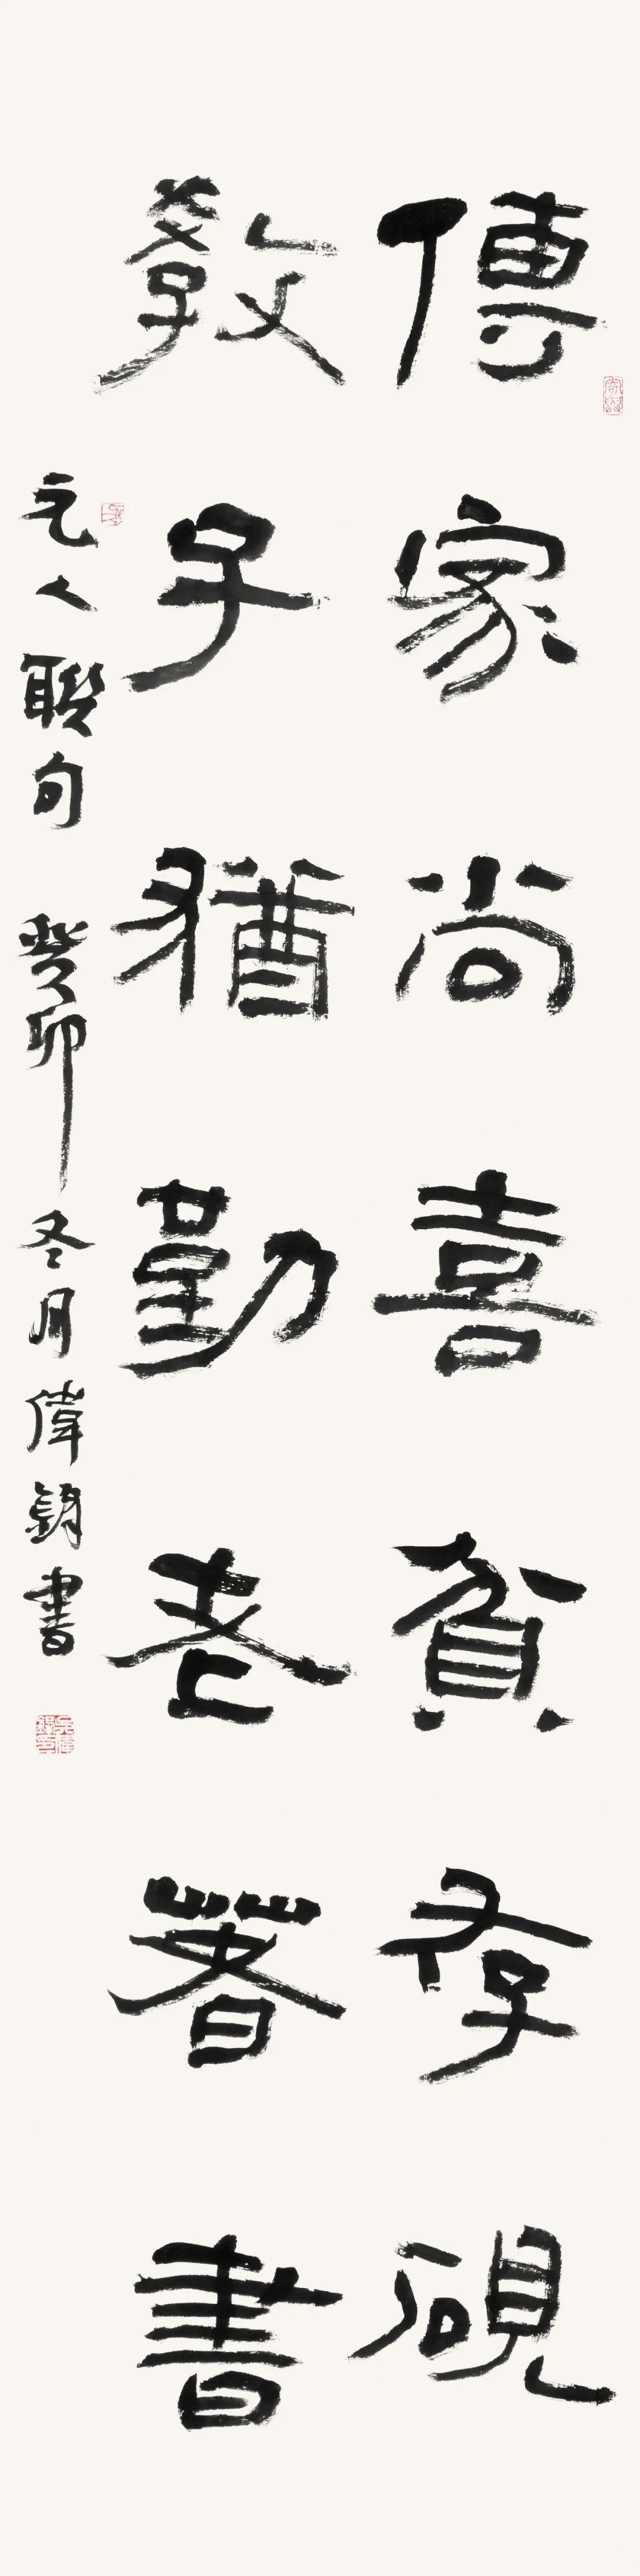 傳家尚喜貧存硯
教子猶勤老著書
元人聯句 癸卯冬月偉鈞書